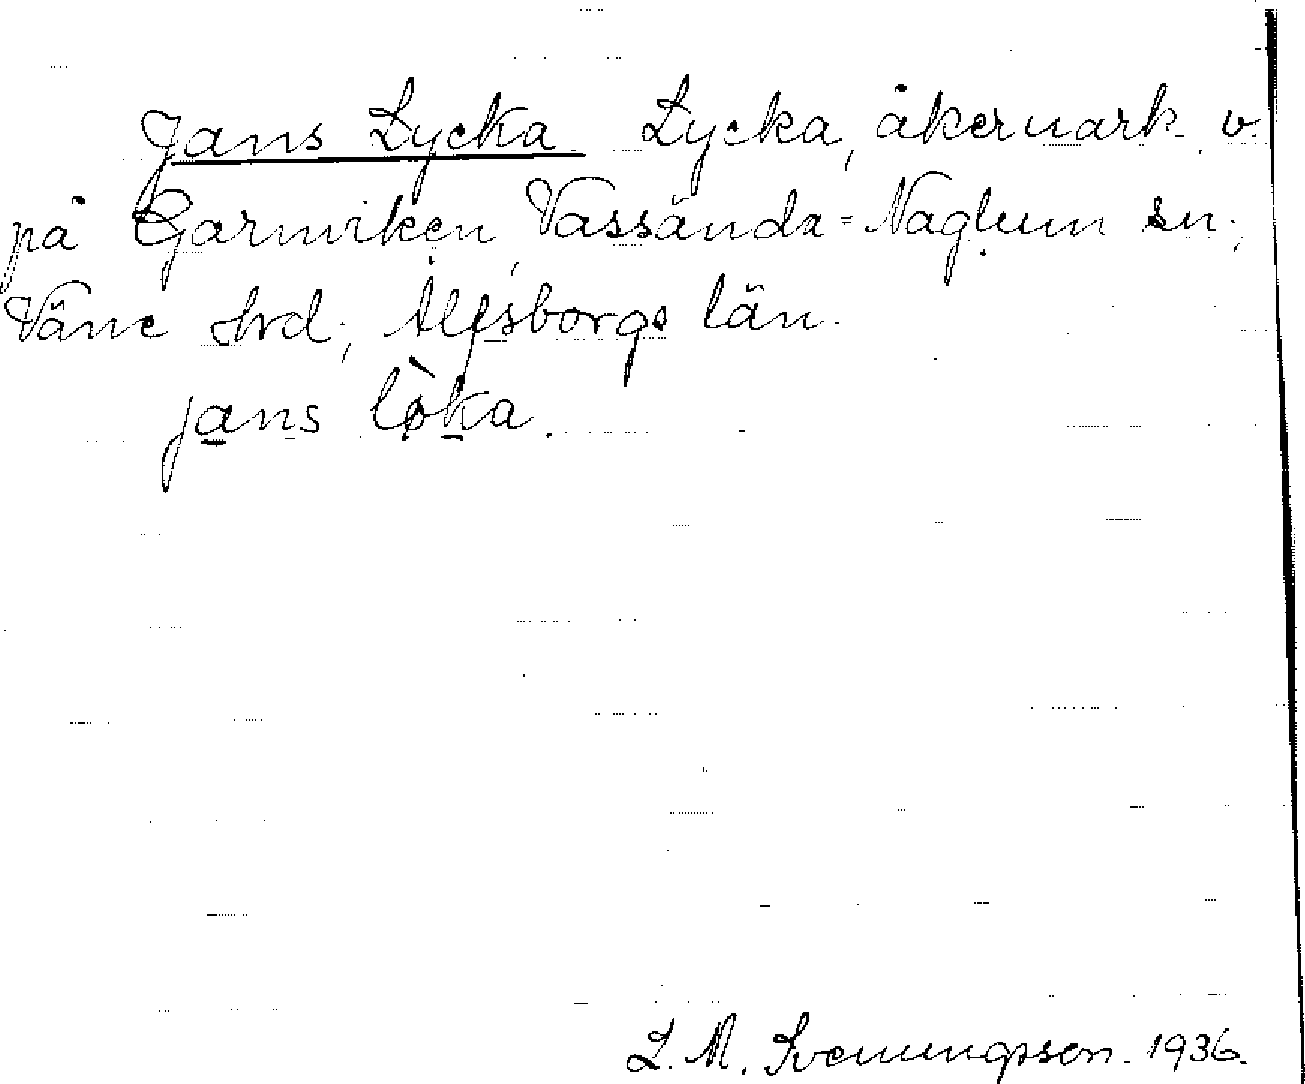 Jans Lycka Lycka, åkermark v.
på Garnviken, Vassända-Naglum sn;
Väne hrd; Älfsborgs län.
jans lòka.
L. M. Svenungsson. 1936.